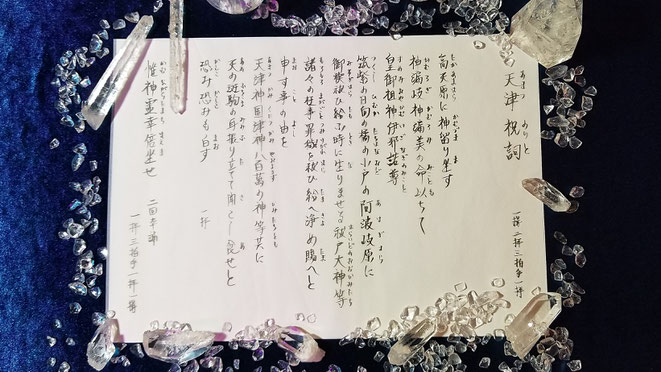 天津祝詞 一拝二拝三拍手一拝
高天原に神留り坐す
神漏岐神漏美の命以ちて
皇御祖神伊邪諾尊
筑紫の日向の橘の小戸の阿波岐原に
御禊祓ひ給ふ時に生りませる祓戸大神等
諸々の枉事罪穢を祓ひ給へ浄め賜へと
申す事の由を
天津神国津神八百萬の神等共に
天の斑駒の耳振り立てて聞こし食せと
恐み恐みも白す 一拝
惟神霊幸倍坐せ 二回奉誦
一拝三拍手一拝一揖